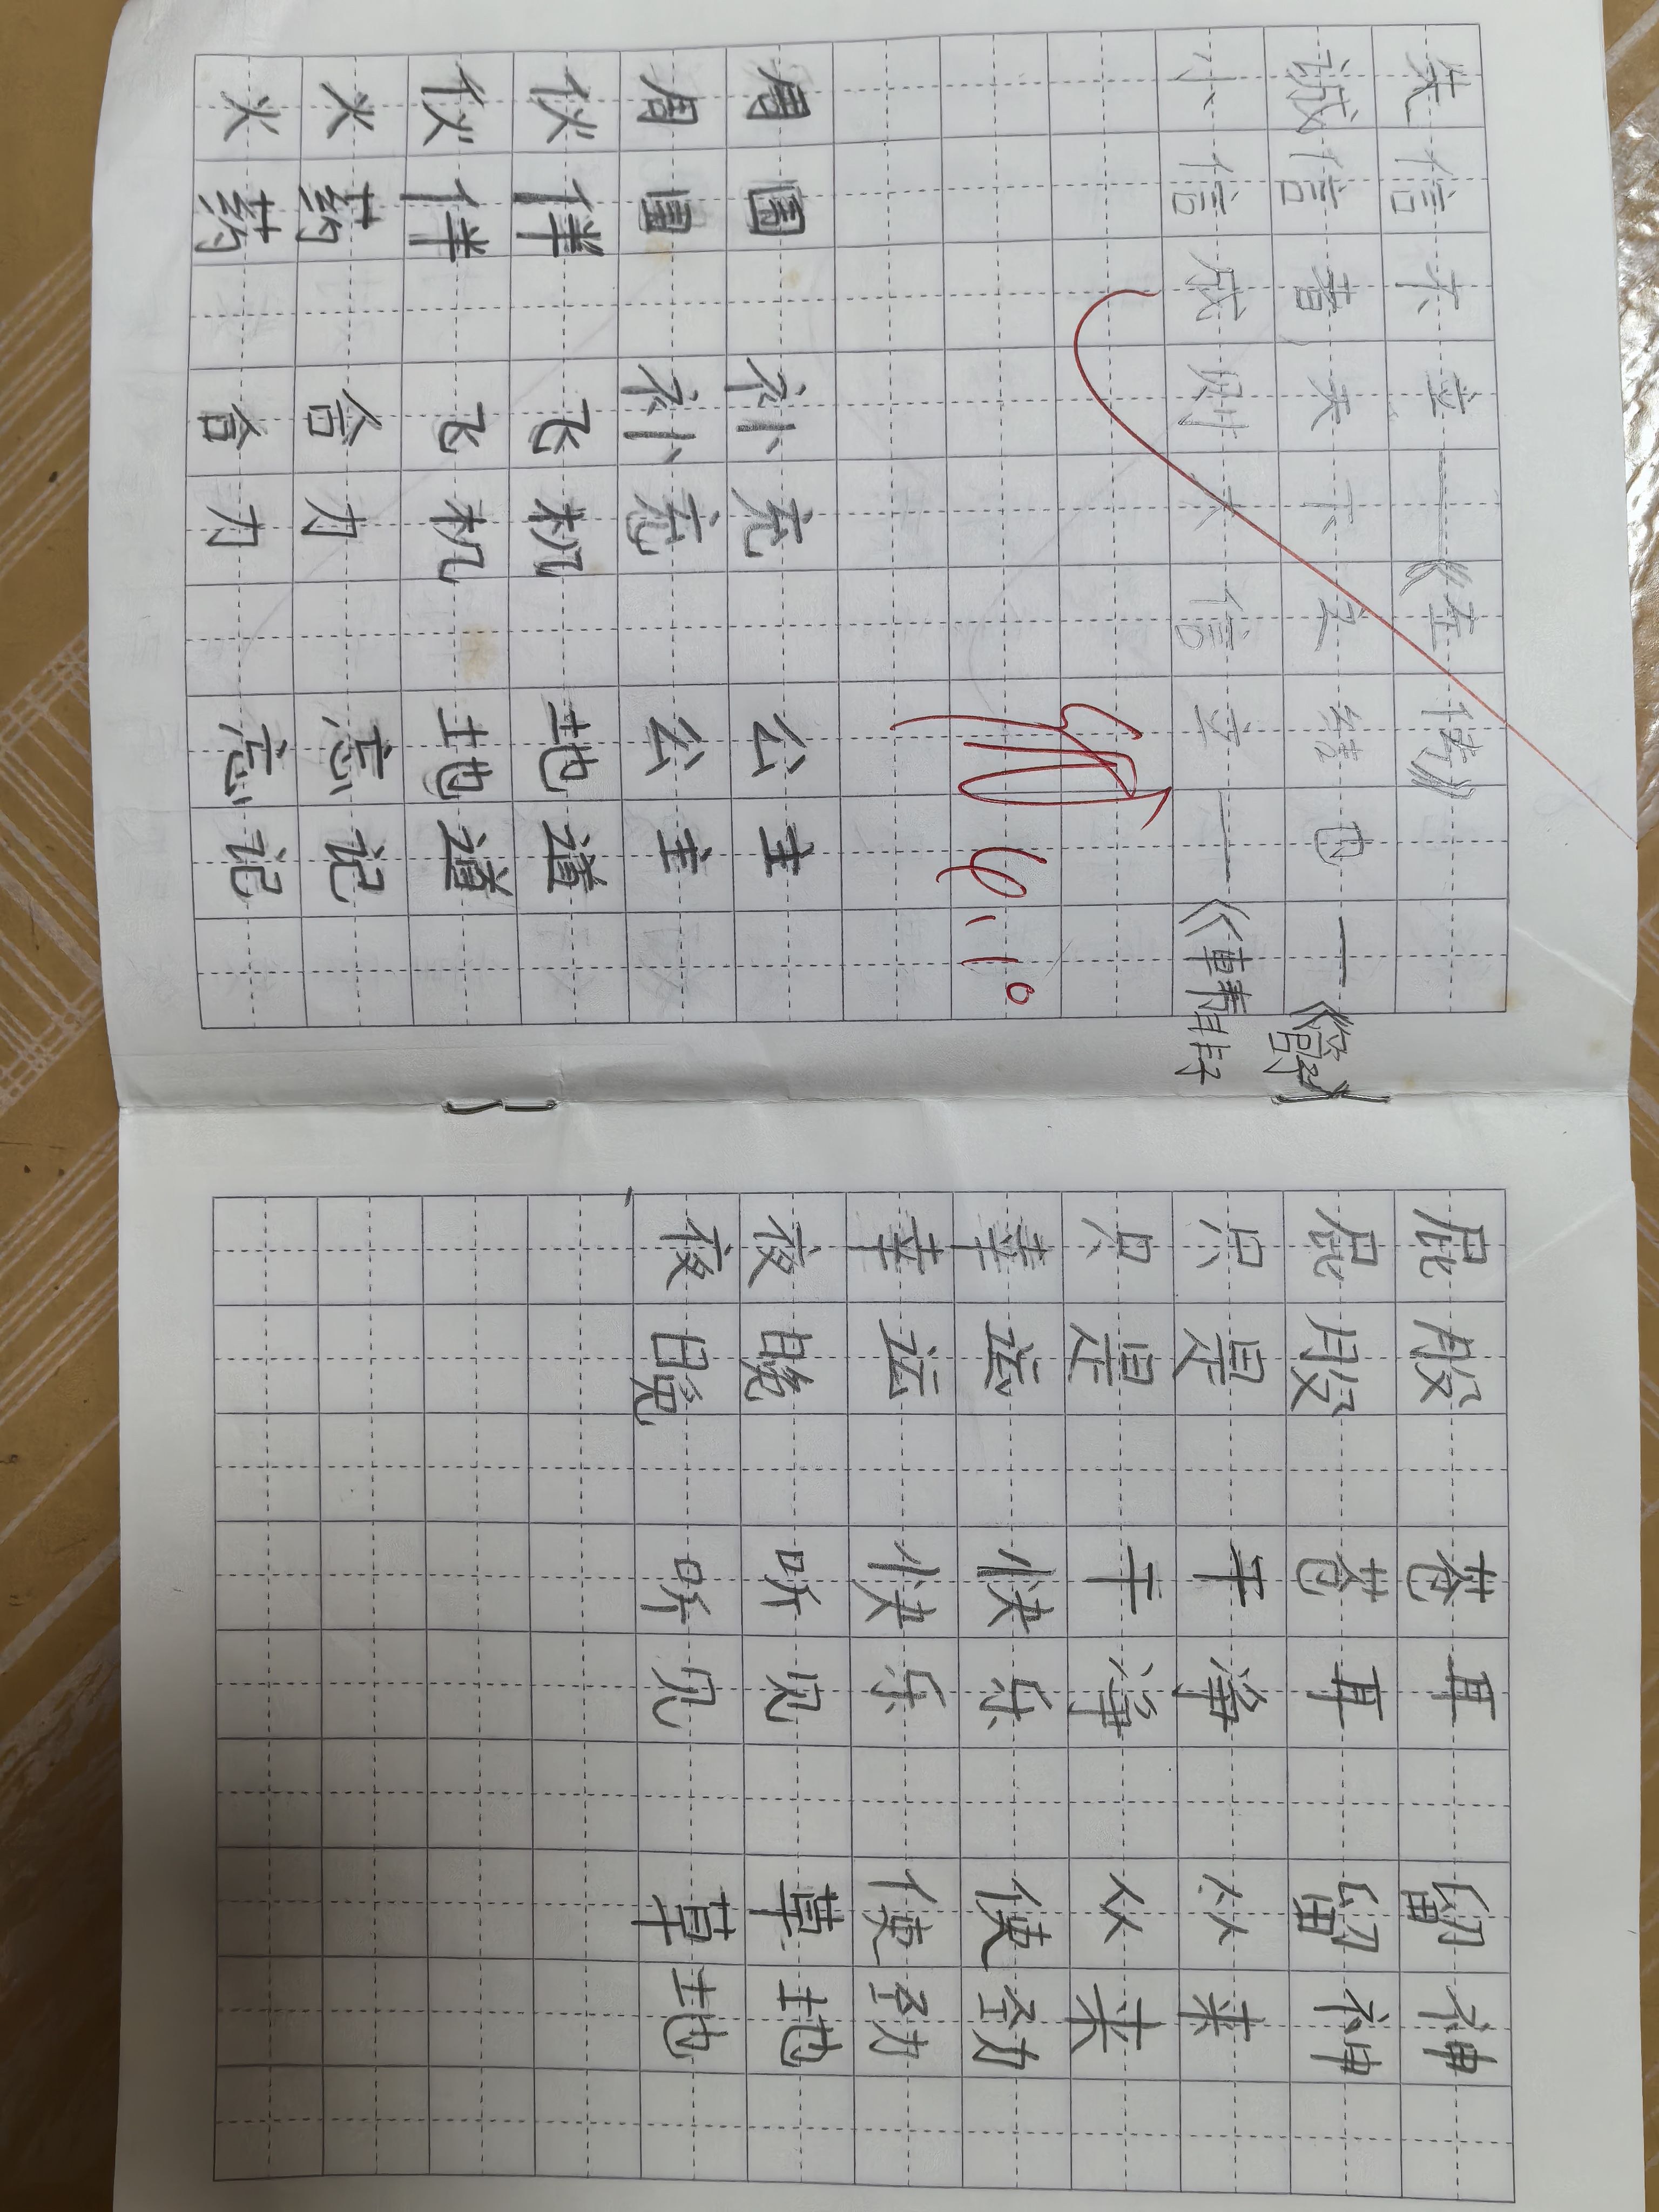 失信不立——《左传》
诚信者天下之结也—《管子》
小信成则大信立——《韩非子
6.10
周围 补充 公主
周围 补充 公主
伙伴 飞机 地道
伙伴 飞机 地道
火药 合力 忘记
火药 合力 忘记
屁股 苍耳 留神
屁股 苍耳 留神
只是 干净 从来
只是 干净 从来
幸运 快乐 使劲
幸运 快乐 使劲
夜晚 听见 草地
夜晚 听见 草地